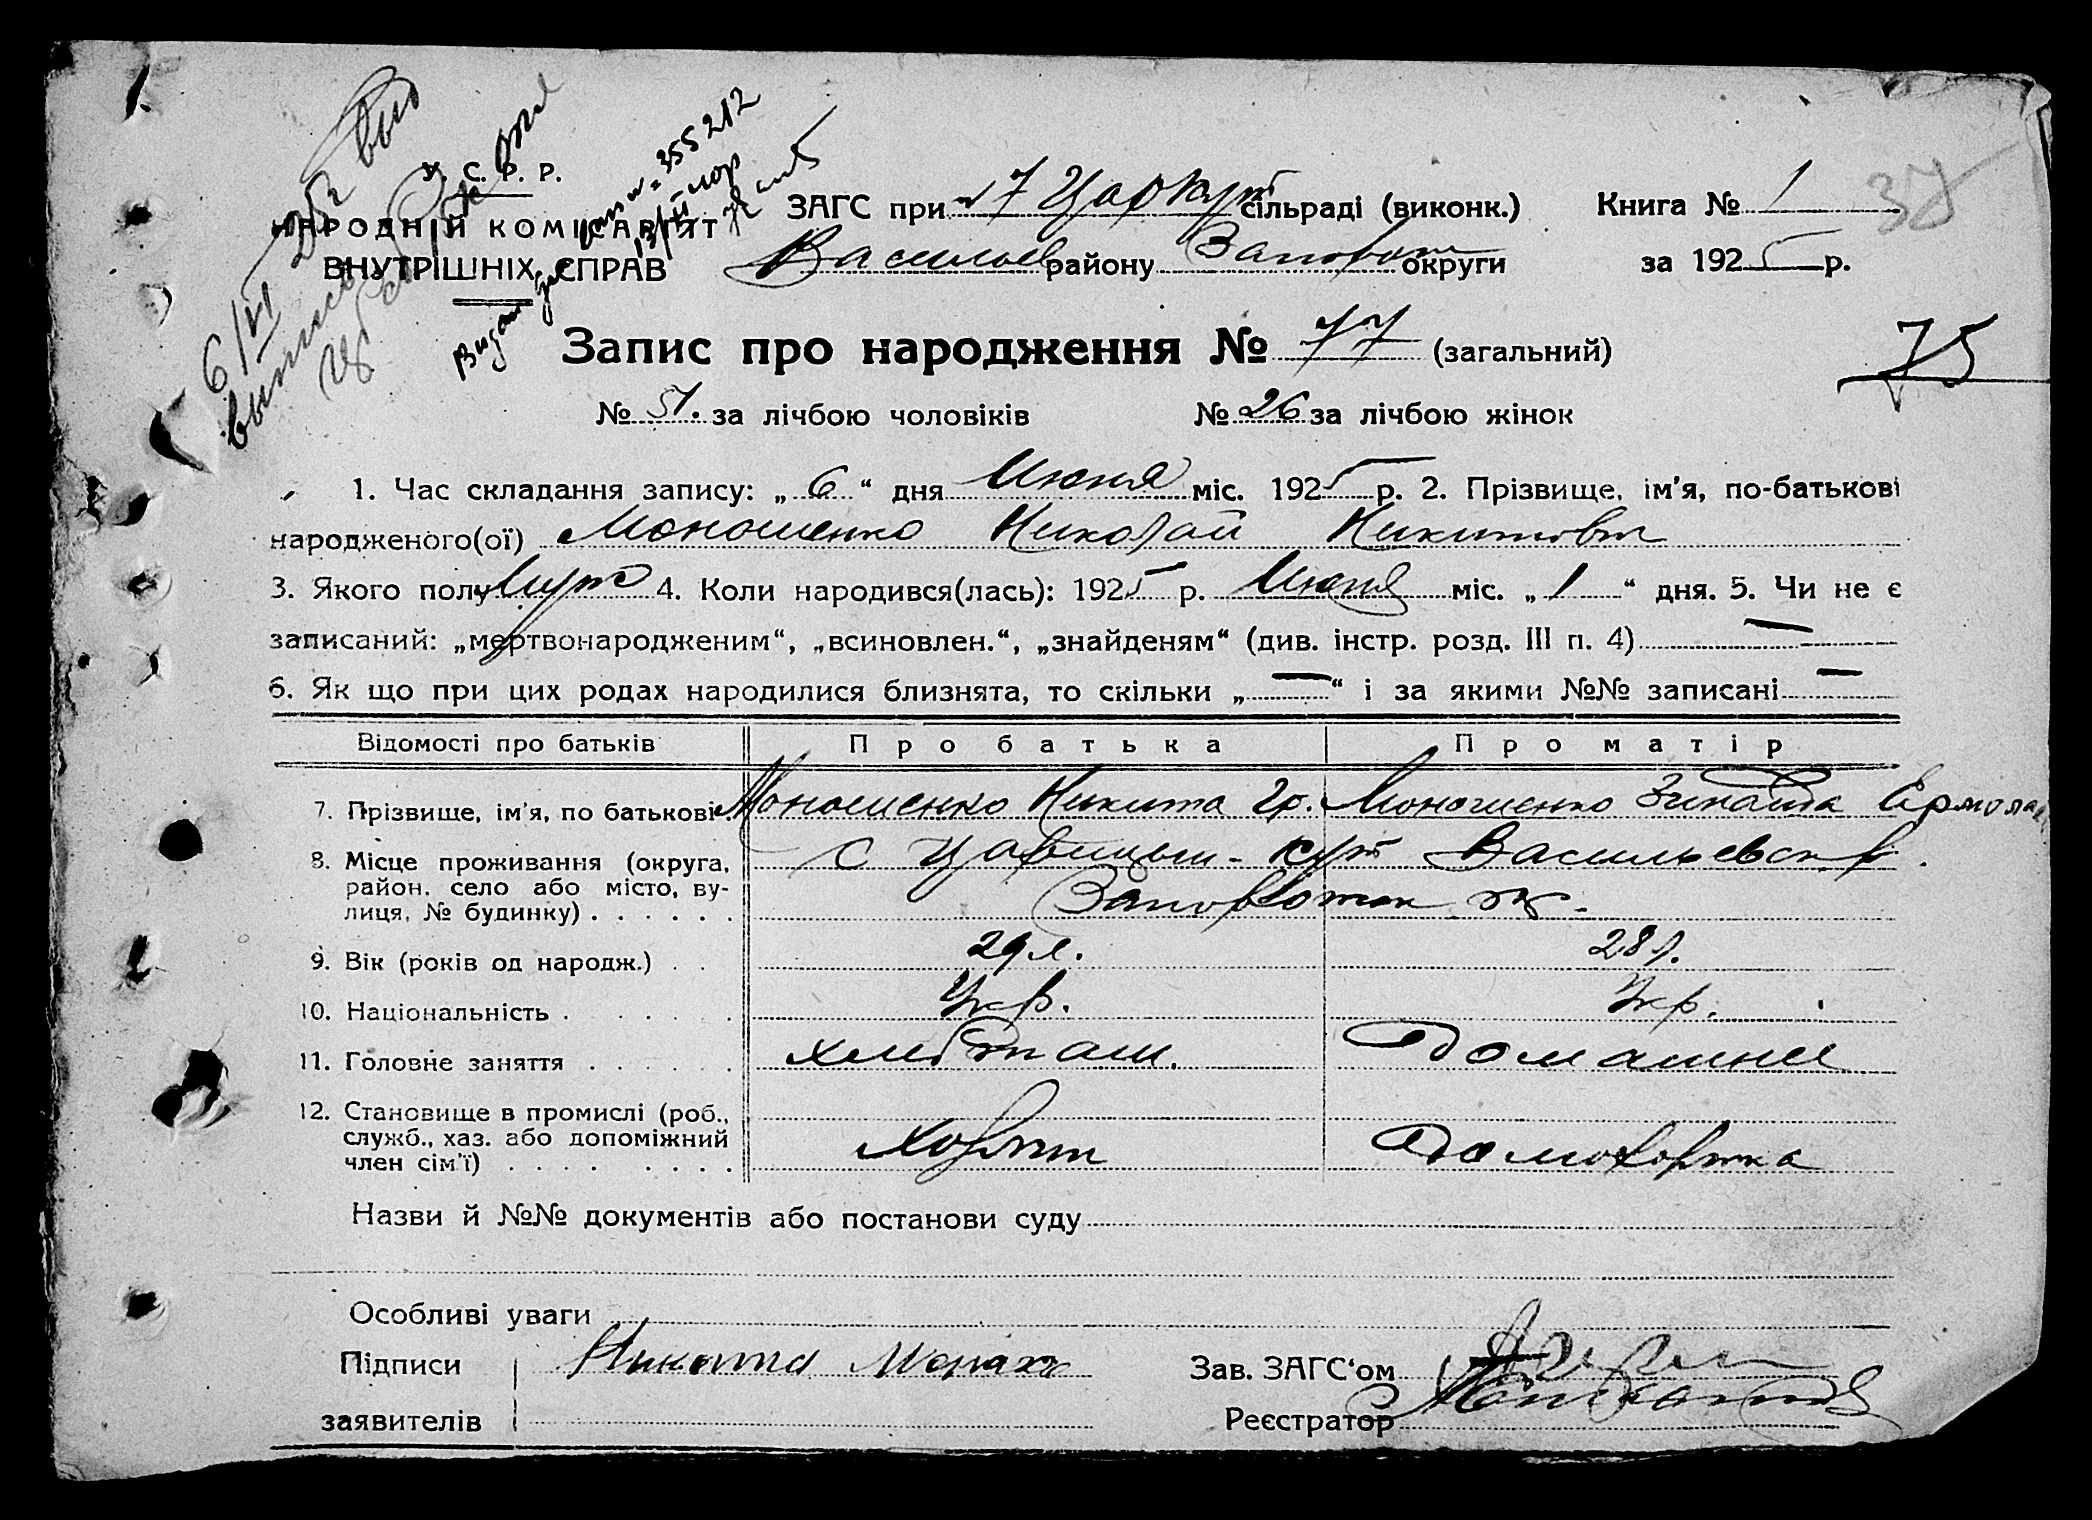 У. С. Р. Р.
НАРОДНІЙ КОМІСАРІЯТ
ВНУТРІШНІХ СПРАВ
355212
ЗАГС при 17 Царкут сільраді (виконк.) Книга № 1
37
Васильев району Запорож округи за 1925 р.
Запис про народження № 77 (загальний)
75
№ 51. за лічбою чоловіків № 26 за лічбою жінок
1. Час складання запису: „6“ дня Июня міс. 1925 р. 2. Прізвище, ім'я, по-батькові
народженого(ої) Мономенко Николай Никитович
3. Якого полу Муж 4. Коли народився(лась): 1925 р. Июня міс. „1“ дня. 5. Чи не є
записаний: „мертвонародженим“, „всиновлен.“, „знайденям“ (див. інстр. розд. III п. 4) —
6. Як що при цих родах народилися близнята, то скільки „—“ і за якими №№ записані —
Відомості про батьків Про батька Про матір
7. Прізвище, ім'я, по батькові Мономенко Никита Гр. Мономенко Зинаида Ермола
8. Місце проживання (округа, с Царицын-кут Васильевск р.
район, село або місто, ву-
лиця, № будинку) Запорожск ок.
9. Вік (років од народж.) 29 л. 28 л.
10. Національність Укр. Укр.
11. Головне заняття хлебопаш. Домашнее
12. Становище в промислі (роб.,
служб., хаз. або допоміжний Хозяин Домохозяйка
член сім'ї)
Назви й №№ документів або постанови суду
Особливі уваги
Підписи Никита Зав. ЗАГС'ом
заявителів Реєстратор